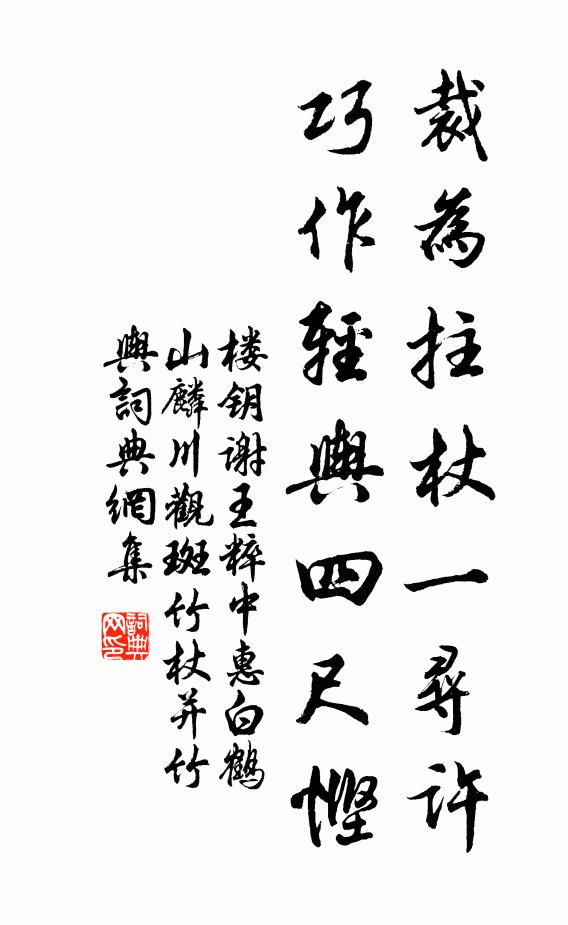 裁為拄杖一尋許
巧作輕輿四尺慳
楼钥谢王粹中惠白鶴
山麟川觀斑竹杖并竹
輿詞典網集
詞典网印